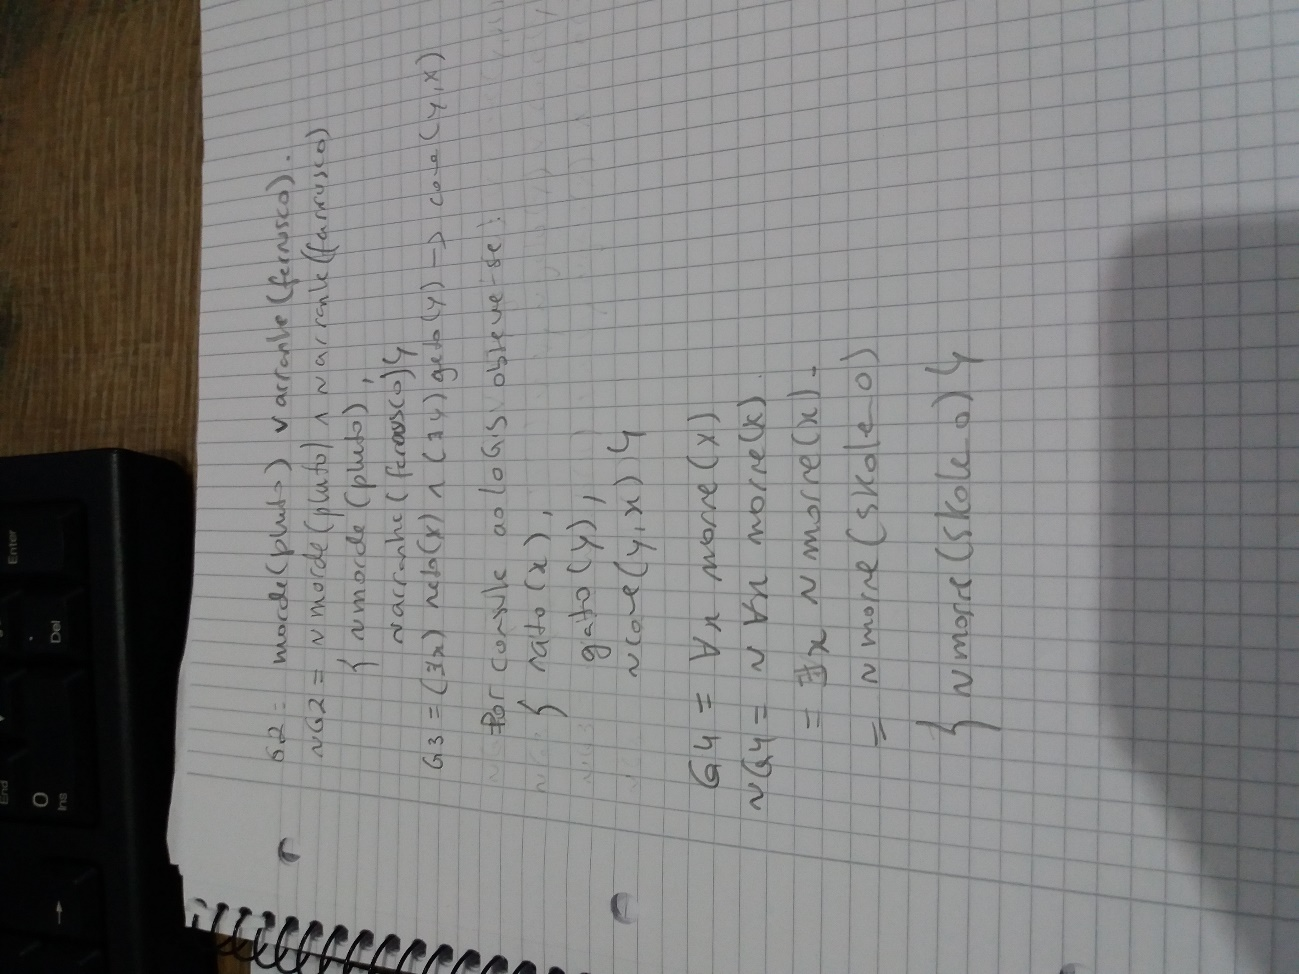 G2 = morde(pluto) v arranhe(ferrusco).
~G2 = ~morde(pluto) ∧ ~arranhe(farrusco)
{ ~morde(pluto),
~arranhe(farrusco)}
G3 = (∃x) rato(x) ∧ (∃y) gato(y) -> come(y,x)
Por consulte ao loGIS observe-se:
{ rato(x),
gato(y),
~come(y,x)}
G4 = ∀x morre(x)
~G4 = ~∀x morre(x).
= ∃x ~morre(x).
= ~morre(skole_0)
{ ~morre(skole_0)}
Enter
Del
End
0
Ins